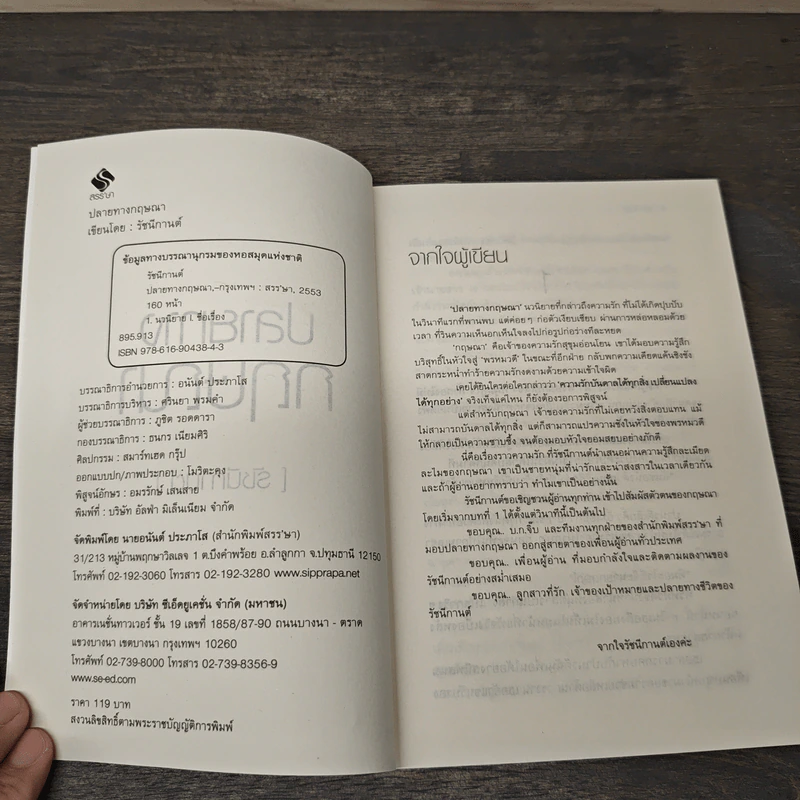 สรรษา
ปลายทางกฤษณา
เขียนโดย : รัชนีกานต์
ข้อมูลทางบรรณานุกรมของหอสมุดแห่งชาติ
รัชนีกานต์
ปลายทางกฤษณา,--กรุงเทพฯ : สรร'ษา, 2553
160 หน้า
1. นวนิยาย I. ชื่อเรื่อง
895.913
ISBN 978-616-90438-4-3
บรรณาธิการอำนวยการ : อนันต์ ประภาโส
บรรณาธิการบริหาร : ศรินยา พรมคำ
ผู้ช่วยบรรณาธิการ : ภูชิต รอดดารา
กองบรรณาธิการ : ธนกร เนียมศิริ
ศิลปกรรม : สมาร์ทเฮด กรุ๊ป
ออกแบบปก/ภาพประกอบ : โมริตะคุง
พิสูจน์อักษร : อมรรักษ์ เสนสาย
พิมพ์ที่ : บริษัท อัลฟ่า มิเล็นเนียม จำกัด
จัดพิมพ์โดย นายอนันต์ ประภาโส (สำนักพิมพ์สรร'ษา)
31/213 หมู่บ้านพฤกษาวิลเลจ 1 ต.บึงคำพร้อย อ.ลำลูกกา จ.ปทุมธานี 12150
โทรศัพท์ 02-192-3060 โทรสาร 02-192-3280 www.sipprapa.net
จัดจำหน่ายโดย บริษัท ซีเอ็ดยูเคชั่น จำกัด (มหาชน)
อาคารเนชั่นทาวเวอร์ ชั้น 19 เลขที่ 1858/87-90 ถนนบางนา - ตราด
แขวงบางนา เขตบางนา กรุงเทพฯ 10260
โทรศัพท์ 02-739-8000 โทรสาร 02-739-8356-9
www.se-ed.com
ราคา 119 บาท
สงวนลิขสิทธิ์ตามพระราชบัญญัติการพิมพ์
จากใจผู้เขียน
'ปลายทางกฤษณา' นวนิยายที่กล่าวถึงความรัก ที่ไม่ได้เกิดปุบปับ
ในวินาทีแรกที่พานพบ แต่ค่อยๆ ก่อตัวเงียบเชียบ ผ่านการหล่อหลอมด้วย
เวลา ที่รินความเห็นอกเห็นใจลงไปก่อรูปก่อร่างทีละหยด
'กฤษณา' คือเจ้าของความรักสุขุมอ่อนโยน เขาได้มอบความรู้สึก
บริสุทธิ์ในหัวใจสู่ 'พรหมวดี' ในขณะที่อีกฝ่าย กลับพกความเดียดแค้นชิงชัง
สาดกระหน่ำทำร้ายความรักงดงามด้วยความเข้าใจผิด
เคยได้ยินใครต่อใครกล่าวว่า 'ความรักบันดาลได้ทุกสิ่ง เปลี่ยนแปลง
ได้ทุกอย่าง' จริงเท็จแค่ไหน ก็ยังต้องรอการพิสูจน์
แต่สำหรับกฤษณา เจ้าของความรักที่ไม่เคยหวังสิ่งตอบแทน แม้
ไม่สามารถบันดาลได้ทุกสิ่ง แต่ก็สามารถแปรความชังในหัวใจของพรหมวดี
ให้กลายเป็นความซาบซึ้ง จนต้องมอบหัวใจยอมสยบอย่างภักดี
นี่คือเรื่องราวความรัก ที่รัชนีกานต์นำเสนอผ่านความรู้สึกละเมียด
ละไมของกฤษณา เขาเป็นชายหนุ่มที่น่ารักและน่าสงสารในเวลาเดียวกัน
และถ้าผู้อ่านอยากทราบว่า ทำไมเขาเป็นอย่างนั้น
รัชนีกานต์ขอเชิญชวนผู้อ่านทุกท่าน เข้าไปสัมผัสตัวตนของกฤษณา
โดยเริ่มจากบทที่ 1 ได้ตั้งแต่วินาทีนี้เป็นต้นไป
ขอบคุณ.. บ.ก.จิ๊บ และทีมงานทุกฝ่ายของสำนักพิมพ์สรร'ษา ที่
มอบปลายทางกฤษณา ออกสู่สายตาของเพื่อนผู้อ่านทั่วประเทศ
ขอบคุณ.. เพื่อนผู้อ่าน ที่มอบกำลังใจและติดตามผลงานของ
รัชนีกานต์อย่างสม่ำเสมอ
ขอบคุณ.. ลูกสาวที่รัก เจ้าของเป้าหมายและปลายทางชีวิตของ
รัชนีกานต์
จากใจรัชนีกานต์เองค่ะ